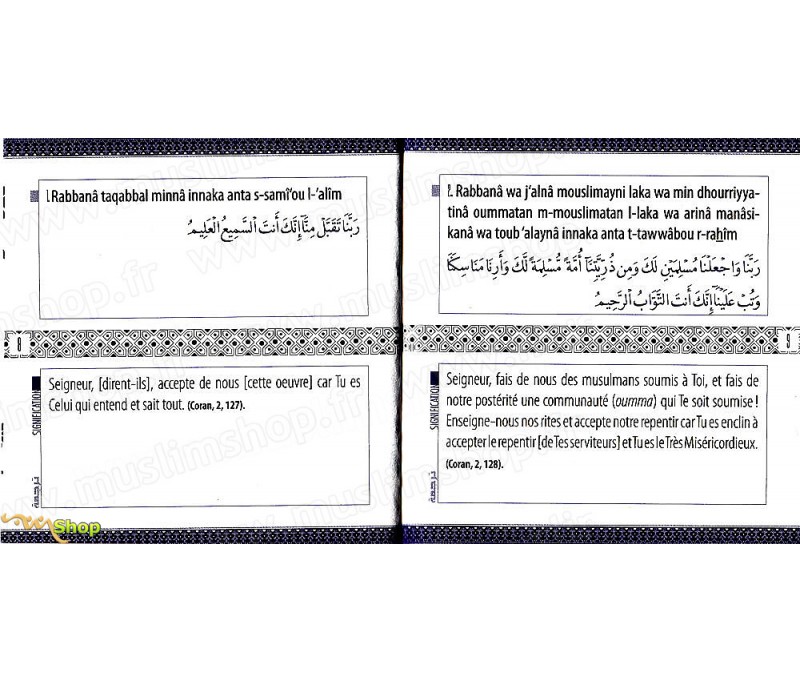 1. Rabbanâ taqabbal minnâ innaka anta s-samî‘ou l-‘alîm
رَبَّنَا تَقَبَّلْ مِنَّا إِنَّكَ أَنتَ السَّمِيعُ الْعَلِيمُ
8
Seigneur, [dirent-ils], accepte de nous [cette oeuvre] car Tu es
Celui qui entend et sait tout. (Coran, 2, 127).
SIGNIFICATION
ترجمة
2. Rabbanâ wa j‘alnâ mouslimayni laka wa min dhourriyya-
tinâ oummatan m-mouslimatan l-laka wa arinâ manâsi-
kanâ wa toub ‘alaynâ innaka anta t-tawwâbou r-rahîm
رَبَّنَا وَاجْعَلْنَا مُسْلِمَيْنِ لَكَ وَمِن ذُرِّيَّتِنَا أُمَّةً مُّسْلِمَةً لَّكَ وَأَرِنَا مَنَاسِكَنَا
وَتُبْ عَلَيْنَا إِنَّكَ أَنتَ التَّوَّابُ الرَّحِيمُ
9
Seigneur, fais de nous des musulmans soumis à Toi, et fais de
notre postérité une communauté (oumma) qui Te soit soumise !
Enseigne-nous nos rites et accepte notre repentir car Tu es enclin à
accepter le repentir [de Tes serviteurs] et Tu es le Très Miséricordieux.
(Coran, 2, 128).
SIGNIFICATION
ترجمة
Shop
www.muslimshop.fr